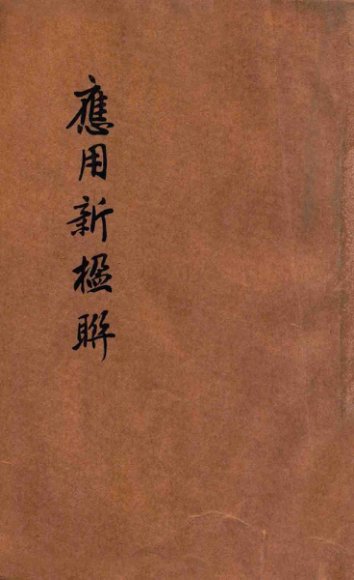 應用新楹聯